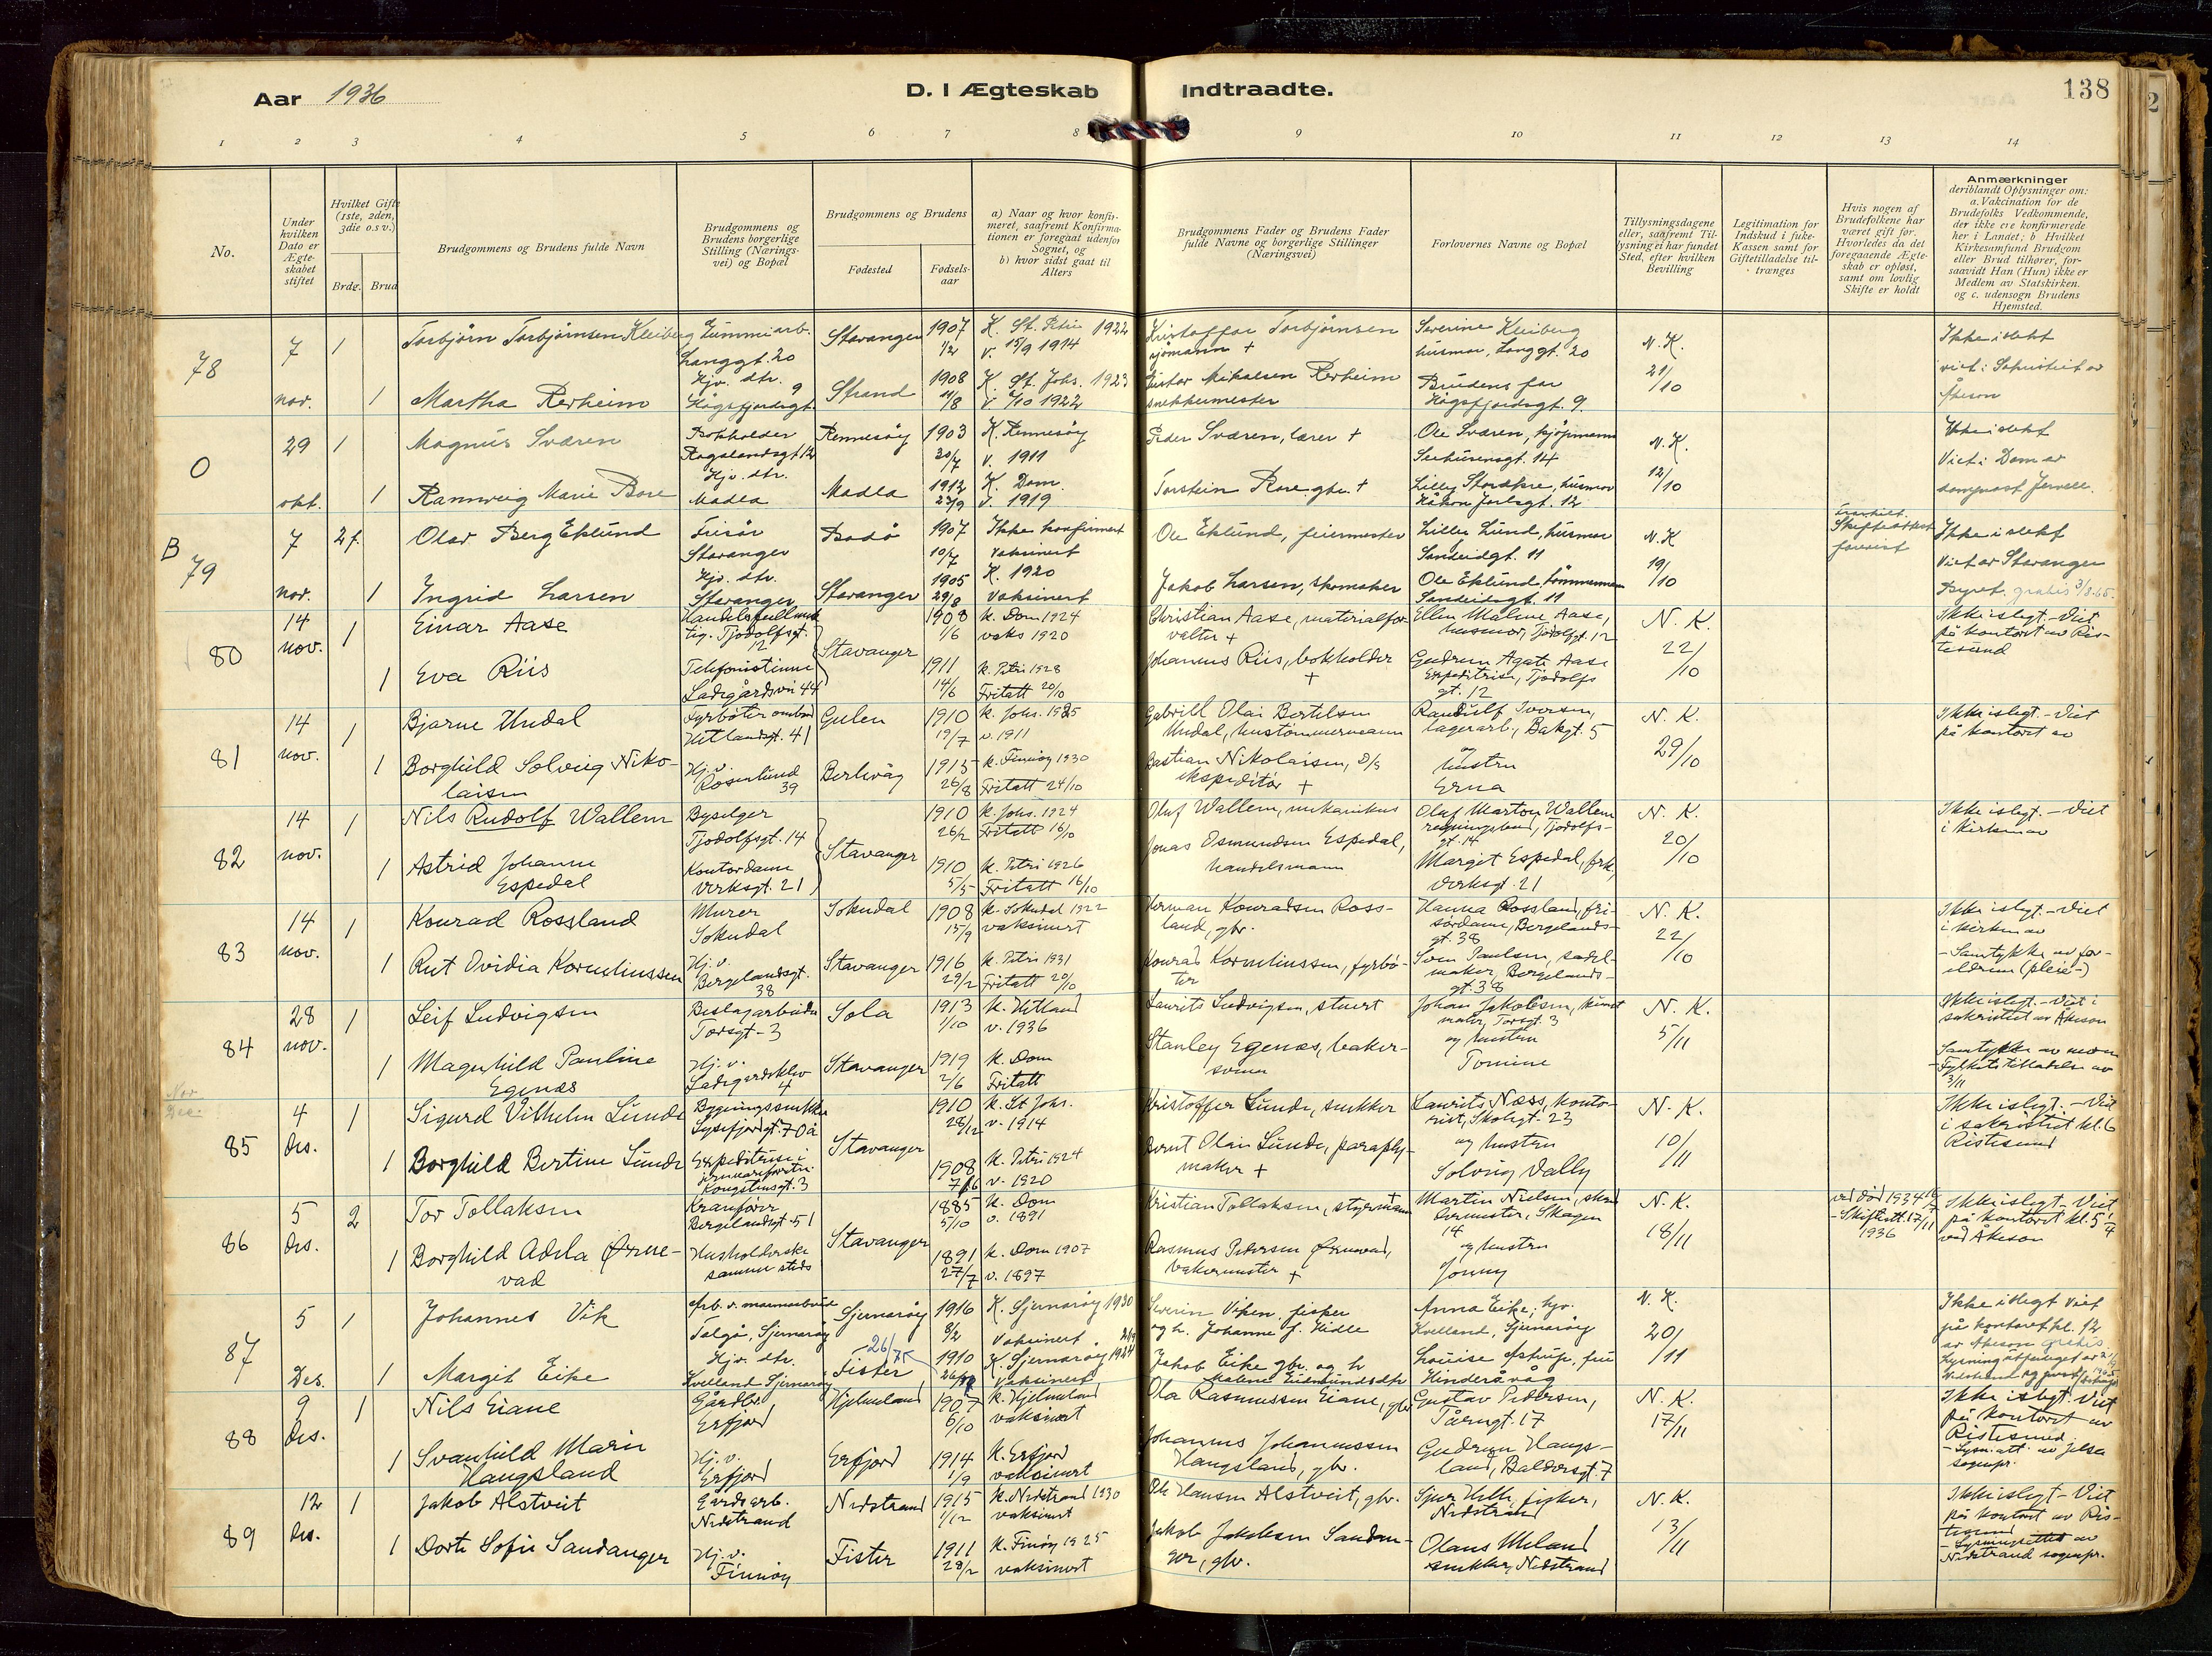 Aar 1936
D. I Ægteskab Indtraadte.
138
1 2 3 4 5 6 7 8 9 10 11 12 13 14
No.
Under hvilken Dato er Ægteskabet stiftet
Hvilket Gifte (1ste, 2den, 3die o.s v.)
Brdg. Brud
Brudgommens og Brudens fulde Navn
Brudgommens og Brudens borgerlige Stilling (Næringsvei) og Bopæl
Brudgommens og Brudens
Fødested
Fødselsaar
a) Naar og hvor konfirmeret, saafremt Konfirmationen er foregaaet udenfor Sognet, og
b) hvor sidst gaat til Alters
Brudgommens Fader og Brudens Fader fulde Navne og borgerlige Stillinger (Næringsvei)
Forlovernes Navne og Bopæl
Tillysningsdagene eller, saafremt Tillysning ei har fundet Sted, efter hvilken Bevilling
Legitimation for Indskud i Enke-Kassen samt for Giftetilladelse tiltrænges
Hvis nogen af Brudefolkene har været gift før. Hvorledes da det foregaaende Ægteskab er opløst, samt om lovlig Skifte er holdt
Anmærkninger
deriblandt Oplysninger om: a. Vakcination for de Brudefolks Vedkommende, der ikke ere konfirmerede her i Landet; b Hvilket Kirkesamfund Brudgom eller Brud tilhører, forsaavidt Han (Hun) ikke er Medlem av Statskirken. og c. udensogn Brudens Hjemsted.
78
7 nov. 1 Torbjørn Torbjørnsen Kleiberg Gummiarb. Langgt. 20 Stavanger 1907 1/2 K. St. Petri 1922 v. 15/9 1914 Kristoffer Torbjørnsen sjømann + Severine Kleiberg husmor, Langgt. 20 N.K. 21/10 Ikke i slekt
1 Martha Rerheim Hjv. dtr. Høgsfjordgt. 9 Strand 1908 11/8 K. St. Johs. 1923 Mikalsen Rerheim snekkermester Brudens far Høgsfjordsgt. 9. viet i Sakristiet av Åkeson
0
29 okt. 1 Magnus Sværen Bokholder Rogalandsgt 12 Rennesøy 1903 20/7 K. Rennesøy v. 1911 Peder Sværen, lærer + Ole Sværen, kjøpmann Seehusensgt. 14 N.K. 12/10 Ikke i slekt
1 Rannveig Marie Bore Hjv. dtr. Madla Madla 1912 23/9 K. Dom v. 1919 Torstein Bore gbr. + Håkon Jarlsgt. 12 Viet i Dom av
B 79
7 nov. 2f. Olav Berg Eklund Frisør Stavanger Bodø 1907 10/7 Ikke konfirmert vaksinert Ole Eklund, feiermester Lilly Lund, husmor Sandeidgt. 11 N.K 19/10 Skifteattest Ikke i slekt
1 Ingrid Larsen Hjv. dtr. Stavanger Stavanger 1905 29/8 K. 1920 vaksinert Jakob Larsen, skomaker Ole Eklund, tømmermann Sandeidgt. 11 Viet av Stavanger Byret. gratis 3/8-65.
80
14 nov. 1 Einar Aase Handelsfullmektig. Tjodolfsgt. 12 Stavanger 1908 1/6 k. Dom 1924 vaks 1920 Christian Aase, materialforvalter + Ellen Malene Aase, husmor, Tjodolfsgt. 12 N. K. 22/10 Ikke i slegt. - Viet på kontoret av Ristesund
1 Eva Riis Telefonistinne Ladegårdsvei 44 1911 14/6 k. Petri 1928 Fritatt 20/10 Johannes Riis, bokholder + Gudrun Agate Aase Expeditrise, Tjodolfs gt. 12
81
14 nov. 1 Bjarne Undal Fyrbøter ombord Hetlandsgt. 41 Gulen 1910 19/7 k. Johs. 1925 v. 1911 Gabriell Olai Bertilsen Undal, hustømmermann Randulf Iversen, lagerarb., Bakgt. 5 N. K. 29/10 Ikke i slegt. - Viet på kontoret av
1 Borghild Solveig Nikolaisen Hj. v. Rosenlund 39 Berlevåg 1915 26/8 k. Finnøy 1930 Fritatt 24/10 Bastian Nikolaisen, D/S ekspeditør + og hustru Erna
82
14 nov. 1 Nils Rudolf Wallem Byselger Tjodolfsgt. 14 Stavanger 1910 26/2 k. Johs. 1924 Fritatt 16/10 Oluf Wallem, mekanikus Oluf Marton Wallem Tjodolfsgt. 14 N. K. 20/10 Ikke i slegt. - Viet i kirken av
1 Astrid Johanne Espedal Kontordame Verksgt. 21 1910 5/5 k. Petri 1926 Fritatt 16/10 Jonas Osmundsen Espedal, handelsmann Margit Espedal, frk, Verksgt. 21
83
14 nov. 1 Konrad Rossland Murer Sokndal Sokndal 1908 15/9 k. Sokndal 1922 vaksinert Herman Konradsen Rossland, gbr. Hanna Rossland, frisørdame, Bergelandsgt. 38 N. K. 22/10 Ikke i slegt. - Viet i kirken av
1 Rut Ovidia Korneliussen Hj. v. Bergelandsgt. 38 Stavanger 1916 29/2 k. Petri 1931 Fritatt 20/10 Konrad Korneliussen, fyrbøter Sven Paulsen, sadelmaker, Bergelandsgt. 38 - Samtykke av foreldrene (pleie-)
84
28 nov. 1 Leif Ludvigsen Beslagarbeider Torsgt. 3 Sola 1913 1/10 k. Hetland v. 1936 Laurits Ludvigsen, stuert Johan Jakobsen, kunstmaler, Torsgt. 3 og hustru Tomine N. K. 5/11 Ikke i slegt. - Viet i sakristiet av Åkeson
1 Magnhild Pauline Egenæs Hj. v. Ladegårdsklev 4 Stavanger 1919 2/6 k. Dom Fritatt Stanley Egenæs, bakersvenn Samtykke av moren - Fylkets tilladelse av 3/11
Nov Dec.
85
4 des. 1 Sigurd Vilhelm Lunde Bygningssnekker Lysefjordgt. 70a Stavanger 1910 28/12 k. St Johs. v. 1914 Kristoffer Lunde, snekker Laurits Næss, kontorist, Skolegt. 23 og hustru Solveig Vally N. K. 10/11 Ikke i slegt. - Viet i sakristiet kl. 6 Ristesund
1 Borghild Bertine Lunde Expeditrise i Kongstensgt. 3 1908 7/6 k. Petri 1924 v. 1920 Bernt Olai Lunde, paraplymaker +
86
5 des. 2 Tor Tollaksen Kranfører Bergelandsgt 51 Stavanger 1885 5/10 k. Dom v. 1891 Kristian Tollaksen, styrmann + Martin Nielsen, Skagen 14 og hustru Jonny N. K. 18/11 ved død 1934 - Skifteatt. 17/11 1936 Ikke i slegt - Viet på kontoret kl. 5 ved Åkeson
1 Borghild Adela Ørnevad Husholderske samme steds 1891 27/7 k. Dom 1907 v. 1897 Rasmus Pedersen Ørnevad, bakermester +
87
5 Des. 1 Johannes Vik Talgø, Sjernarøy Sjernarøy 1916 9/2 K. Sjernarøy 1930 vaksinert. Severin Viken, fisker og h. Johanne J. Hidle Anna Eike, hjv. Kvelland, Sjernarøy N. K. 20/11 Ikke i slegt viet på kontoret kl. 12 av Åkeson gratis.
1 Margit Eike Hjv. dtr. Kvelland Sjernarøy Fister 26/7 1910 K. Sjernarøy 1924 vaksinert Jakob Eike gbr. og h Malene Eidmundsdtr Louise Østrup, fru Hinderåvåg
88
9 des. 1 Nils Eiane Gårdbr. Erfjord Hjelmeland 1907 6/10 k. Hjelmeland vaksinert Ola Rasmussen Eiane, gbr Gustav Pedersen, Tårngt. 17 N. K. 17/11 Ikke i slegt. Viet på kontoret av Ristesund.
1 Svanhild Marie Haugsland Hj. v. Erfjord Erfjord 1914 1/9 k. Erfjord vaksinert Johannes Johannessen Haugsland, gbr. Gudrun Haugsland, Baldersgt. 7 - Lysn. att. av Jelsa sognepr.
89
12 des. 1 Jakob Alstveit Gårdsarb. Nedstrand Nedstrand 1915 1/12 k. Nedstrand 1930 vaksinert Ole Hansen Alstveit, gbr. fisker, Nedstrand N. K. 13/11 Ikke i slegt - Viet på kontoret av Ristesund
1 Dorte Sofie Sandanger Hj. v. Finnøy Fister 1911 28/2 k. Finnøy 1925 vaksinert Jakob Jakobsen Sandanger, gbr. Olaus Meland snekker, Nedstrand - Lysningsattest av Nedstrand sognepr.